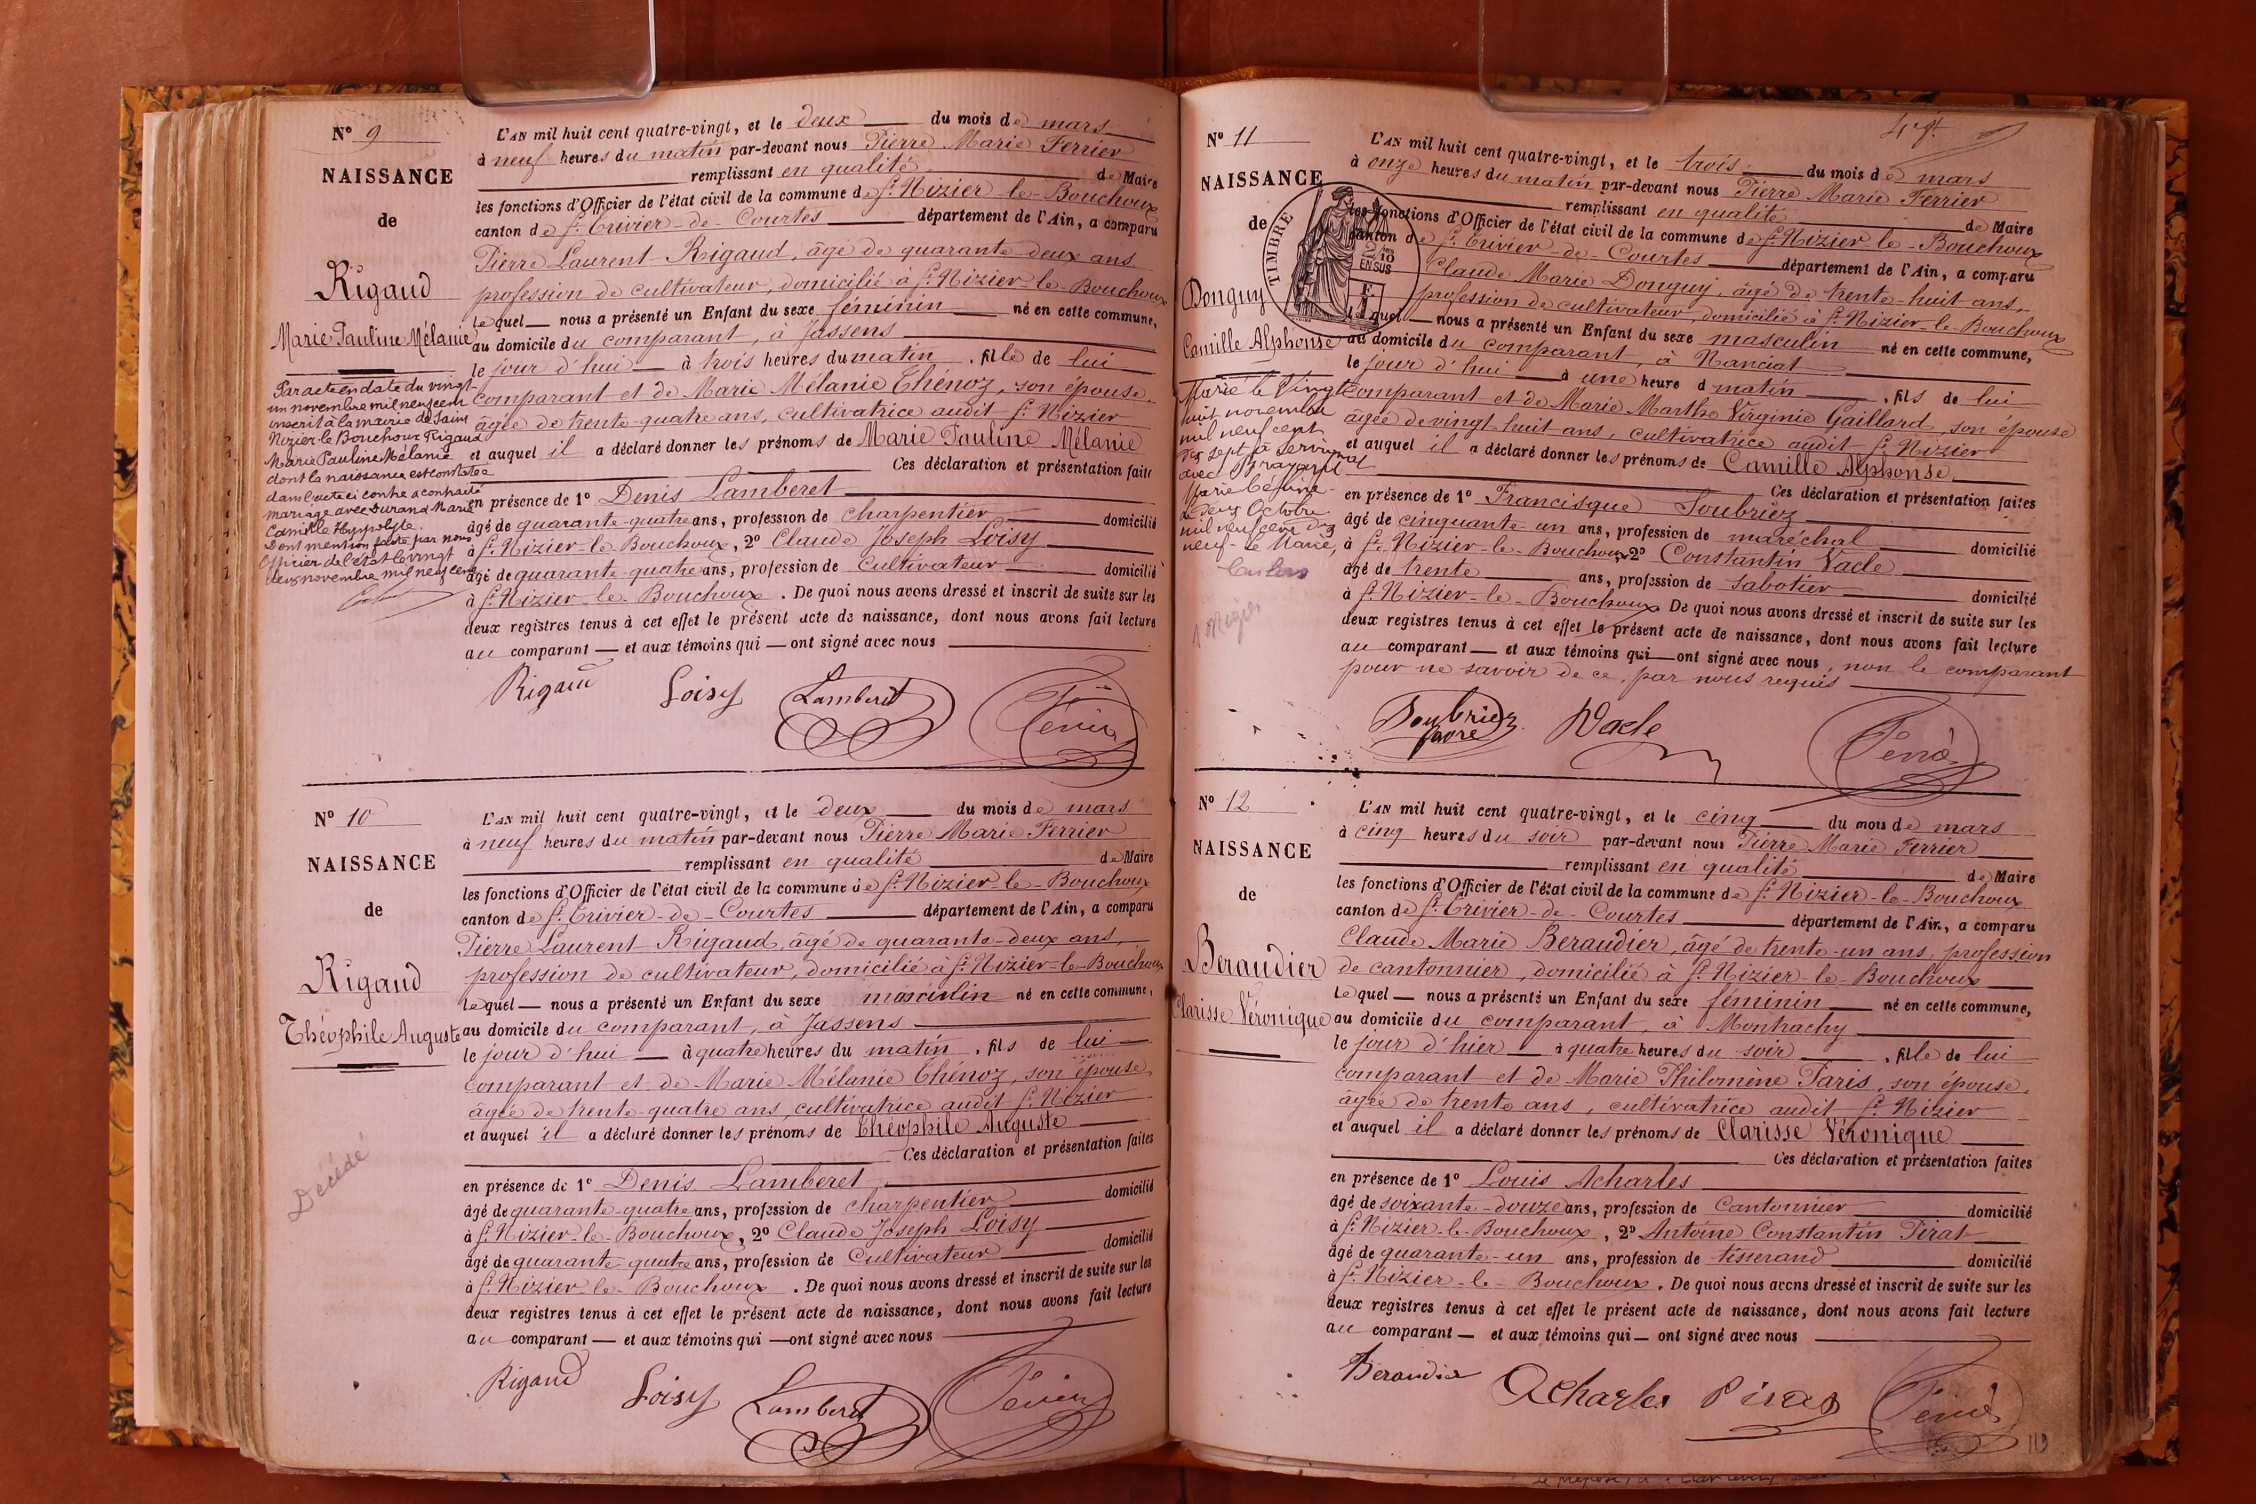 N° 9
NAISSANCE
de
Rigaud
Marie Pauline Mélanie
Par acte en date du vingt-
un novembre mil neuf cent
inscrit à la mairie de Saint
Nizier-le-Bouchoux Rigaud
Marie Pauline Mélanie
dont la naissance est constatée
dans l'acte ci contre a contracté
mariage avec Durand Marie
Camille Hyppolyte.
Dont mention faite par nous
officier de l'état le vingt
deux novembre mil neuf cent
L'AN mil huit cent quatre-vingt, et le deux du mois de mars
à neuf heures du matin par-devant nous Pierre Marie Ferrier
remplissant en qualité de Maire
les fonctions d'Officier de l'état civil de la commune de St Nizier-le-Bouchoux
canton de St Trivier-de-Courtes département de l'Ain, a comparu
Pierre Laurent Rigaud, âgé de quarante-deux ans
profession de cultivateur, domicilié à St Nizier-le-Bouchoux
lequel nous a présenté un Enfant du sexe féminin né en cette commune,
au domicile du comparant, à Jassens
le jour d'hui à trois heures du matin, fille de lui
comparant et de Marie Mélanie Thénoz, son épouse,
âgée de trente-quatre ans, cultivatrice audit St Nizier
et auquel il a déclaré donner les prénoms de Marie Pauline Mélanie
Ces déclaration et présentation faites
en présence de 1° Denis Lamberet
âgé de quarante-quatre ans, profession de charpentier domicilié
à St Nizier-le-Bouchoux, 2° Claude Joseph Loisy
âgé de quarante-quatre ans, profession de Cultivateur domicilié
à St Nizier-le-Bouchoux. De quoi nous avons dressé et inscrit de suite sur les
deux registres tenus à cet effet le présent acte de naissance, dont nous avons fait lecture
au comparant et aux témoins qui ont signé avec nous
Rigaud Loisy Lamberet
N° 10
NAISSANCE
de
Rigaud
Théophile Auguste
Décédé
L'AN mil huit cent quatre-vingt, et le deux du mois de mars
à neuf heures du matin par-devant nous Pierre Marie Ferrier
remplissant en qualité de Maire
les fonctions d'Officier de l'état civil de la commune de St Nizier-le-Bouchoux
canton de St Trivier-de-Courtes département de l'Ain, a comparu
Pierre Laurent Rigaud, âgé de quarante-deux ans,
profession de cultivateur, domicilié à St Nizier-le-Bouchoux
lequel nous a présenté un Enfant du sexe masculin né en cette commune,
au domicile du comparant, à Jassens
le jour d'hui à quatre heures du matin, fils de lui
comparant et de Marie Mélanie Thénoz, son épouse,
âgée de trente-quatre ans, cultivatrice audit St Nizier
et auquel il a déclaré donner les prénoms de Théophile Auguste
Ces déclaration et présentation faites
en présence de 1° Denis Lamberet
âgé de quarante-quatre ans, profession de charpentier domicilié
à St Nizier-le-Bouchoux, 2° Claude Joseph Loisy
âgé de quarante-quatre ans, profession de Cultivateur domicilié
à St Nizier-le-Bouchoux. De quoi nous avons dressé et inscrit de suite sur les
deux registres tenus à cet effet le présent acte de naissance, dont nous avons fait lecture
au comparant et aux témoins qui ont signé avec nous
Rigaud Loisy Lamberet
N° 11
NAISSANCE
de
TIMBRE
2/10
EN SUS
Donguy
Camille Alphonse
Marié le vingt
huit novembre
mil neuf cent
dix sept à Servignat
avec
Marie Céline
Le deux Octobre
mil neuf cent dix
neuf - Le Maire,
L'AN mil huit cent quatre-vingt, et le trois du mois de mars
à onze heures du matin par-devant nous Pierre Marie Ferrier
remplissant en qualité de Maire
les fonctions d'Officier de l'état civil de la commune de St Nizier-le-Bouchoux
canton de St Trivier-de-Courtes département de l'Ain, a comparu
Claude Marie Donguy, âgé de trente-huit ans,
profession de cultivateur, domicilié à St Nizier-le-Bouchoux
lequel nous a présenté un Enfant du sexe masculin né en cette commune,
au domicile du comparant, à Nanciat
le jour d'hui à une heure du matin, fils de lui
comparant et de Marie Marthe Virginie Gaillard, son épouse
âgée de vingt-huit ans, cultivatrice audit St Nizier
et auquel il a déclaré donner les prénoms de Camille Alphonse
Ces déclaration et présentation faites
en présence de 1° Francisque Soubriez
âgé de cinquante-un ans, profession de maréchal domicilié
à St Nizier-le-Bouchoux, 2° Constantin Vacle
âgé de trente ans, profession de sabotier domicilié
à St Nizier-le-Bouchoux. De quoi nous avons dressé et inscrit de suite sur les
deux registres tenus à cet effet le présent acte de naissance, dont nous avons fait lecture
au comparant et aux témoins qui ont signé avec nous, non le comparant
pour ne savoir de ce, par nous requis
Soubriez Vacle
N° 12
NAISSANCE
de
Beraudier
Clarisse Véronique
L'AN mil huit cent quatre-vingt, et le cinq du mois de mars
à cinq heures du soir par-devant nous Pierre Marie Ferrier
remplissant en qualité de Maire
les fonctions d'Officier de l'état civil de la commune de St Nizier-le-Bouchoux
canton de St Trivier-de-Courtes département de l'Ain, a comparu
Claude Marie Beraudier, âgé de trente-un ans, profession
de cantonnier, domicilié à St Nizier-le-Bouchoux
lequel nous a présenté un Enfant du sexe féminin né en cette commune,
au domicile du comparant, à Montrachy
le jour d'hier à quatre heures du soir, fille de lui
comparant et de Marie Philomène Paris, son épouse,
âgée de trente ans, cultivatrice audit St Nizier
et auquel il a déclaré donner les prénoms de Clarisse Véronique
Ces déclaration et présentation faites
en présence de 1° Louis Acharles
âgé de soixante-douze ans, profession de Cantonnier domicilié
à St Nizier-le-Bouchoux, 2° Antoine Constantin Pirat
âgé de quarante-un ans, profession de tisserand domicilié
à St Nizier-le-Bouchoux. De quoi nous avons dressé et inscrit de suite sur les
deux registres tenus à cet effet le présent acte de naissance, dont nous avons fait lecture
au comparant et aux témoins qui ont signé avec nous
Beraudier Acharles Pirat
113